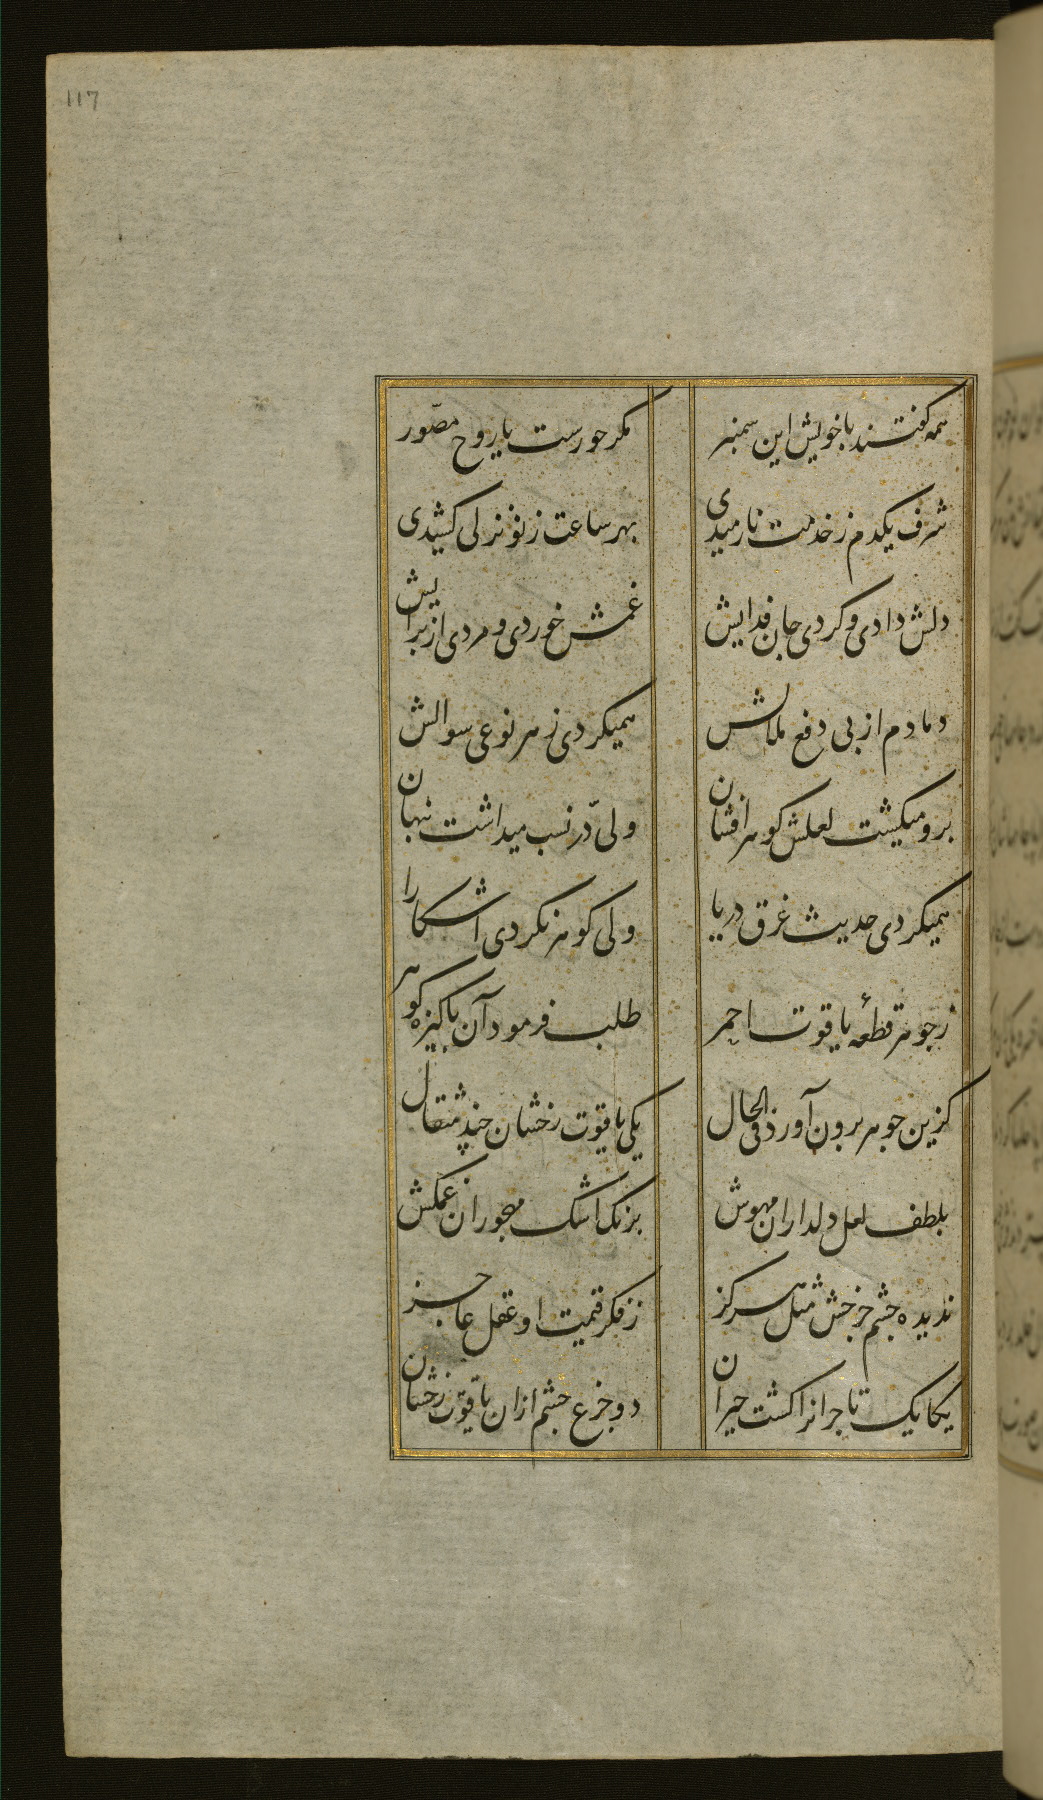 117
همه کفتند باخویش این سمنبر مکر حورست یا روح مصّور
شرف یکدم ز خدمت نارمیدی بهر ساعت زنو نزلی کشیدی
دلش دادی و کردی جان فدایش غمش خوردی و مردی از برایش
دمادم از پی دفع ملالش همیکردی ز هر نوعی سوالش
برو میکشت لعلش کوهر افشان ولی دّر نسب میداشت پنهان
همیکردی حدیث غرق دریا ولی کوهر نکردی اشکارا
ز جوهر قطعهٔ یاقوت احمر طلب فرمود آن پاکیزه کوهر
کزین جوهر برون آور فی الحال یکی یاقوت رخشان چند مثقال
بلطف لعل دلداران مهوش برنک اشک مهجوران غمکش
ندیده چشم چرخش مثل هرکز ز فکر قیمت او عقل عاجز
یکایک تاجرانرا کشت حیران دو جزع چشم ازان یاقوت رخشان